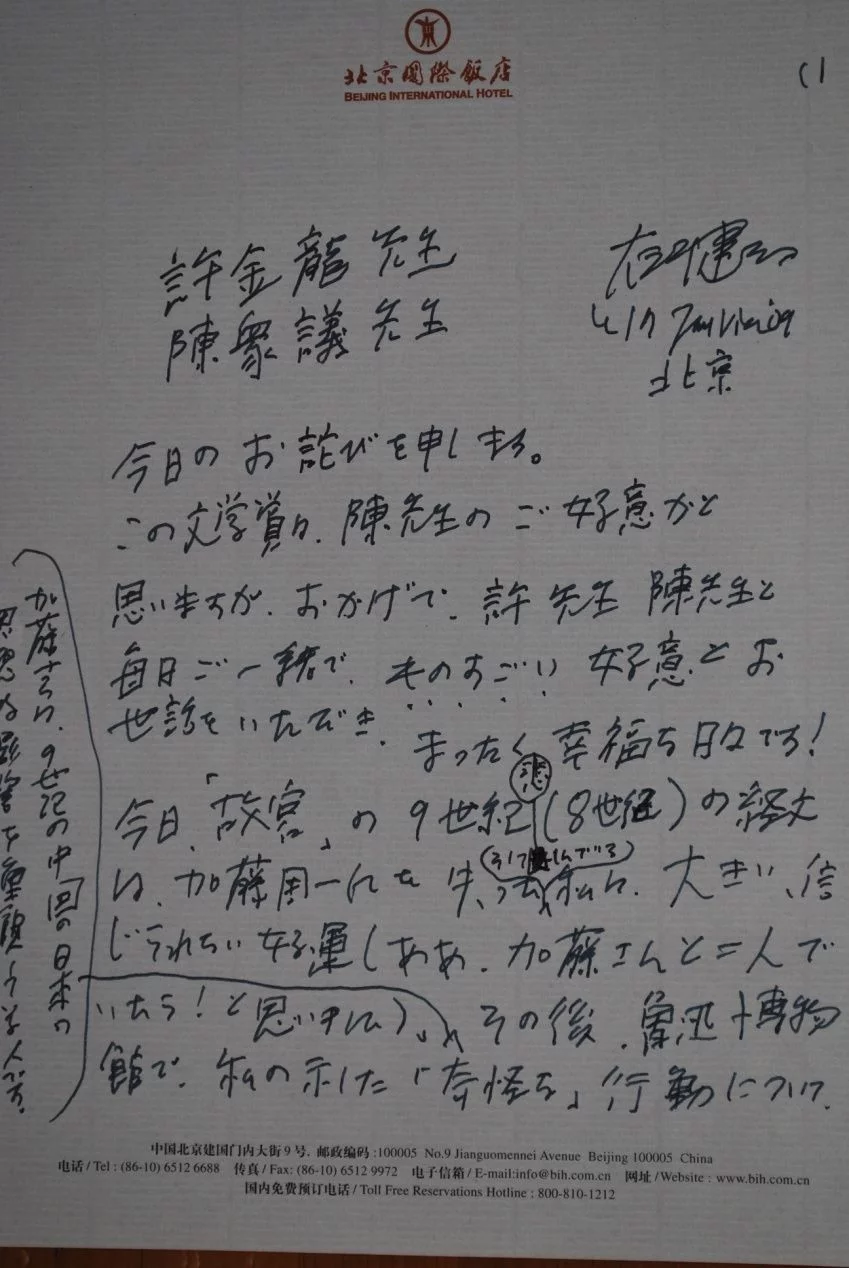 北京国際飯店
BEIJING INTERNATIONAL HOTEL
(1
許金龍先生
陳衆議先生
大江健三郎
北京
今日のお詫びを申します。
この文学賞は、陳先生のご好意かと
思いますが、おかげで、許先生 陳先生と
毎日ご一緒で、ものすごい好意とお
世話をいただき、まったく幸福な日々です!
今日、「故宮」の9世紀(8世紀)の
は、加藤周一氏を失った私に、大きい、信
じられない好運(ああ、加藤さんと二人で
いたら!と思いました)、その後、魯迅博物
館で、私の示した「奇怪な」行動について、
悲
加藤さんは、9世紀の中国の日本の
思想な影響を重視する人です。
中国北京建国门内大街9号. 邮政编码:100005 No.9 Jianguomennei Avenue Beijing 100005 China
电话/Tel:(86-10) 6512 6688 传真/Fax:(86-10) 6512 9972 电子信箱/E-mail:info@bih.com.cn 网址/Website: www.bih.com.cn
国内免费预订电话/Toll Free Reservations Hotline: 800-810-1212